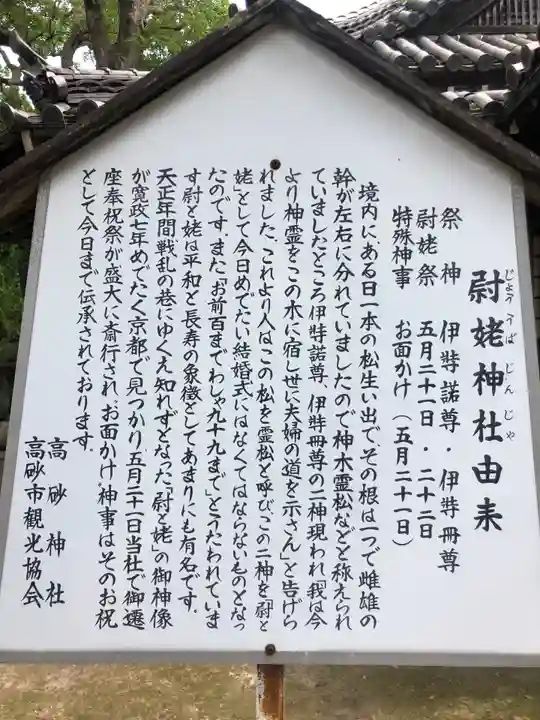 尉姥神社由来
じょううばじんじゃ
祭神 伊弉諾尊・伊弉冊尊
尉姥祭 五月二十一日・二十二日
特殊神事 お面かけ(五月二十一日)
境内に、ある日一本の松生い出で、その根は一つで雌雄の
幹が左右に分れていましたので神木霊松などと称えられ
ていましたところ伊弉諾尊、伊弉冊尊の二神現われ、「我は今
より神霊をこの木に宿し世に夫婦の道を示さん」と告げら
れました。これより人はこの松を霊松と呼びこの二神を「尉と
姥」として今日めでたい結婚式にはなくてはならないものとなっ
たのです。また「お前百までわしゃ九十九まで」とうたわれていま
す尉と姥は平和と長寿の象徴としてあまりにも有名です。
天正年間戦乱の巷にゆくえ知れずとなった「尉と姥」の御神像
が寛政七年めでたく京都で見つかり、五月二十一日当社で御遷
座奉祝祭が盛大に斎行され、お面かけ神事はそのお祝
として今日まで伝承されております。
高砂神社
高砂市観光協会